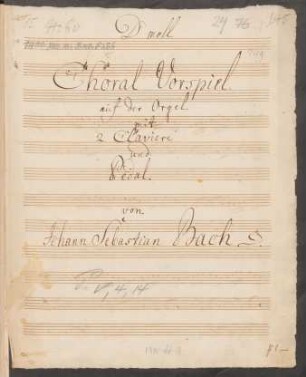 D moll
Choral Vorspiel.
auf der Orgel
mit
2 Claviere
und
Pedal.
von
Johann Sebastian Bach
V, 4, 14